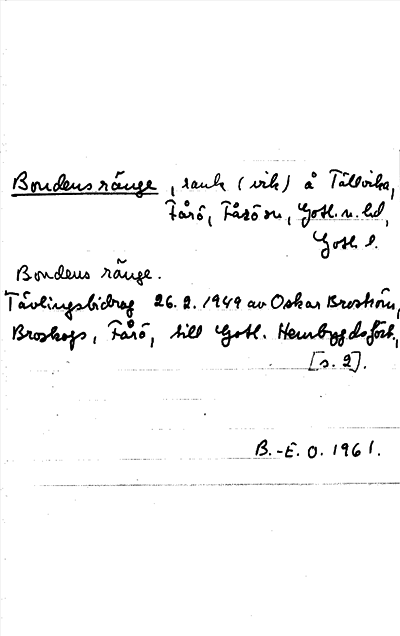 Bondens ränge, rauk (vik) å Tällvika,
Fårö, Fårö sn, Gotl. n. hd,
Gotl. l.
Bondens ränge.
Tävlingsbidrag 26.2.1949 av Oskar Broström,
Broskogs, Fårö, till Gotl. Hembygdsförb.,
[s. 2].
B.-E. O. 1961.